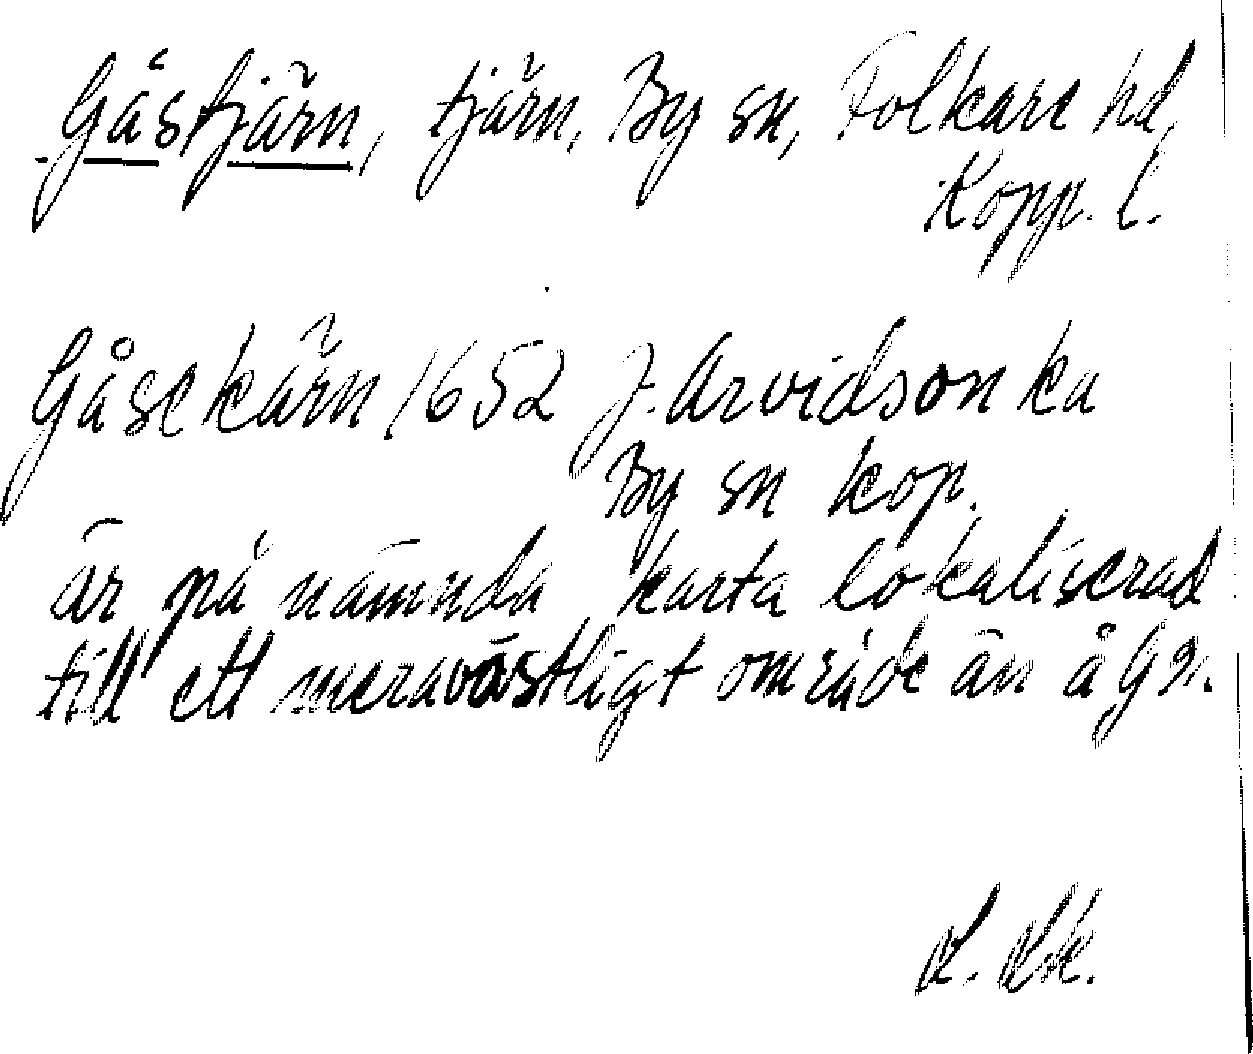 Gåstjärn, tjärn, By sn, Folkare hd,
Kopp. l.
Gåsekärn 1652 J. Arvidson ka
By sn kop.
är på nämnda karta lokaliserad
till ett mera västligt område än å G